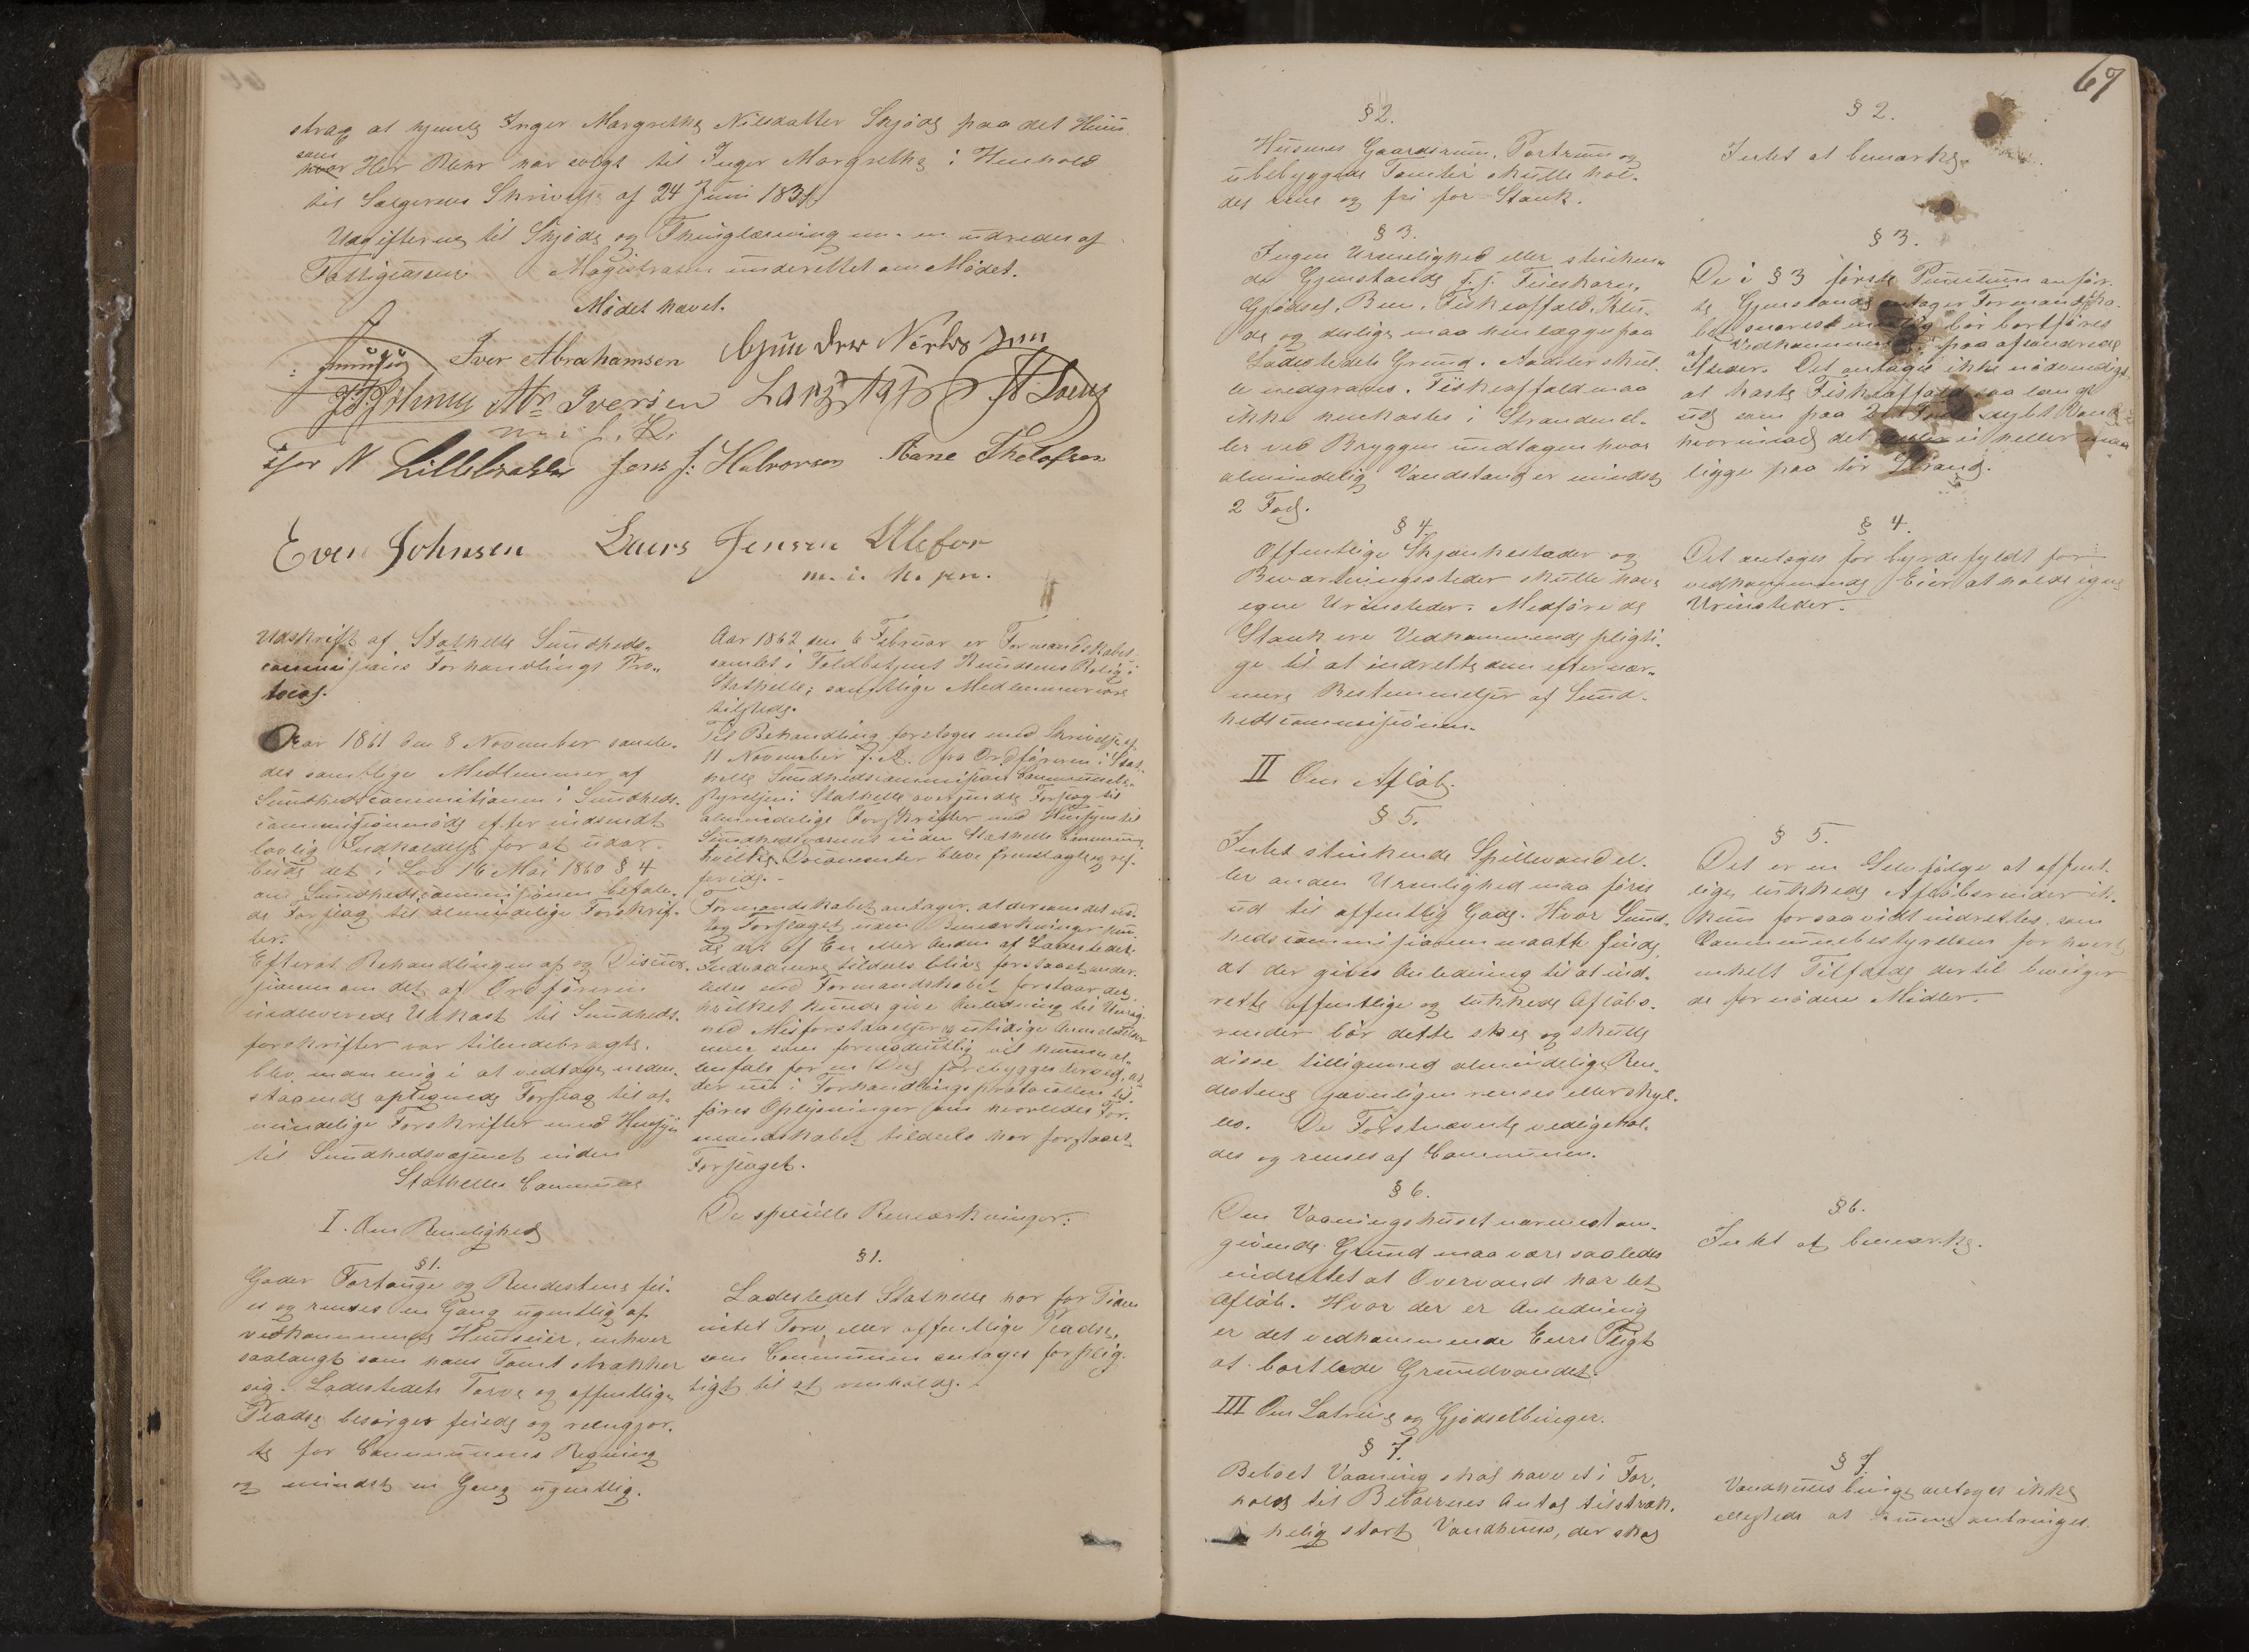 67
strax at hjemle Inger Margrethe Nilsdatter Skjøde paa det Huus
som
hvor Her Blehr har solgt til Inger Margrethe i Henhold
til Sælgerens Skrivelse af 24 Juni 1831
Udgifterne til Skjøde og Thinglæsning m. m. udredes af
Fattigcassen Magistraten underrettet om Mødet.
Mødet hævet.
Iver Abrahamsen Gunder
Abr Iversen Lars
N Lillebakke Jens J. Halvorsen Aane Tholofsen
Even Johnsen Laurs Jensen Ulefos
m. i. h. pen.
Udskrift af Stathelle Sundheds-
commissions Forhandlings Pro-
tocol.
Aar 1861 den 8 November samle-
des samtlige Medlemmer af
Sundhedscommitionen i Sundheds-
commitionsmøde efter indsendt
lovlig Indkaldelse for at udar-
beide det i Lov 16 Mai 1860 § 4
om Sundhedscommisjonen befale-
de Forslag til almindelige Forskrif-
ter.
Efterat Behandlingen af og Discus-
sionen om det af Ordføreren
indleverede Udkast til Sundheds-
forskrifter var tilendebragte.
blev man enig i at vedtage neden-
staaende optegnede Forslag til al-
mindelige Forskrifter med Hensyn
til Sundhedsvæsenet inden
Stathelle Commune
I. Om Renlighed
§ 1.
Gader Fortouge og Rendestene fei-
es og renses en Gang ugentlig af
vedkommende Huuseier, enhver
saalangt som hans Tomt strækker
sig. Ladestedets Torve og offentlige
Pladse besørges feiede og rengjor-
te for Communens Regning
og mindst en Gang ugentlig.
Aar 1862 den 6 Februar er Formandskabet
samlet i Toldbetjent Knudsens Bolig i
Stathelle; samtlige Medlemmer vare
tilstede.
Til Behandling foretoges med Skrivelse af
11 November f. A. fra Ordføreren i Stat-
helle Sundhedscommision Communebe-
styrelsen i Stathelle oversendte Forslag til
almindelige Forskrifter med Hensyn til
Sundhedsvæsenet inden Stathelle Commune
hvilke Documenter bleve fremlagte og ref-
ferede.
Formandskabet antager, at dersom det ved-
tog Forslaget uden Bemærkninger kun-
de det af En eller Anden af Ladestedets
Indvaanere tildeels blive forstaaet ander-
ledes end Formandskabet forstaar det,
hvilket kunde give Anledning til
Misforstaaelser og utidige
som formodentlig vil kunne al-
lenfals for en Deel forebygges derved, at
der nu i Forhandlingsprotocollen til-
føres Oplysninger om hvorledes For-
mandskabet tildeels har forstaaet
Forslaget.
De specielle Bemærkninger:
§ 1.
Ladestedet Stathelle har for Tiden
intet Torv eller offentlige Pladse,
som Communen antages forplig-
tigt til at renholde.
§ 2.
Husenes Gaardsrum, Portrum og
ubebyggede Tomter skulle hol-
des rene og fri for Stank.
§ 3.
Ingen Urenlighed eller stinken-
de Gjenstande s. s. Feieskarn,
Gjødsel, Been, Fiskeaffald, Klu-
de og deslige maa henlægges paa
Ladestedets Grund. Aadsler skul-
le nedgraves. Fiskeaffald maa
ikke henkastes i Stranden el-
ler ved Bryggen undtagen hvor
almindelig Vandstand er mindst
2 Fod.
§ 4.
Offentlige Skjænkesteder og
Beværtningssteder skulle have
egne Urinsteder. Medføre de
Stank ere Vedkommende pligti-
ge til at indrette dem efter nær-
mere Bestemmelser af Sund-
hedscommisjonen.
II Om Afløb.
§ 5.
Intet stinkende Spillevand el-
ler anden Urenlighed maa føres
ud til offentlig Gade. Hvor Sund-
hedscommisionen maatte finde
at der gives Anledning til at ind-
rette offentlige og lukkede Afløbs-
render bør dette skee og skulle
disse tilligemed almindelige Ren-
destene jævnligen renses eller skyl-
les. De Førstnævnte vedligehol-
des og renses af Communen.
§ 6.
Den Vaaningshuset nærmest om-
givende Grund maa være saaledes
indrettet at Overvand har let
Afløb. Hvor der er Anledning
er det vedkommende Eiers Pligt
at bortlede Grundvandet.
III Om Latriner og Gjødselbinger.
§ 7.
Beboet Vaaning skal have et i For-
hold til Beboernes Antal tilstræk-
kelig stort Vandhuus, der skal
§ 2.
Intet at bemærke.
§ 3.
De i § 3 første Punctum anfør-
te Gjenstande antager Formandska-
bet snarest muelig bør bortføres
af Vedkommende paa afsondrede
Steder. Det antages ikke nødvendigt
at kaste Fiskeaffald saa langt
ud som paa 2 Fods dybt Vand
hvorimod det ei heller maa
ligge paa tør Strand.
§ 4.
Det antages for byrdefyldt for
vedkommende Eier at holde egne
Urinsteder.
§ 5.
Det er en Selvfølge at offent-
lige lukkede Afløbsrender ik-
kun forsaavidt indrettes, som
Communebestyrelsen for hvert
enkelt Tilfælde dertil bevilger
de fornødne Midler.
§ 6.
Intet at bemærke.
§ 7.
Vandhuusbinge antages ikke
allesteds at kunne anbringes.